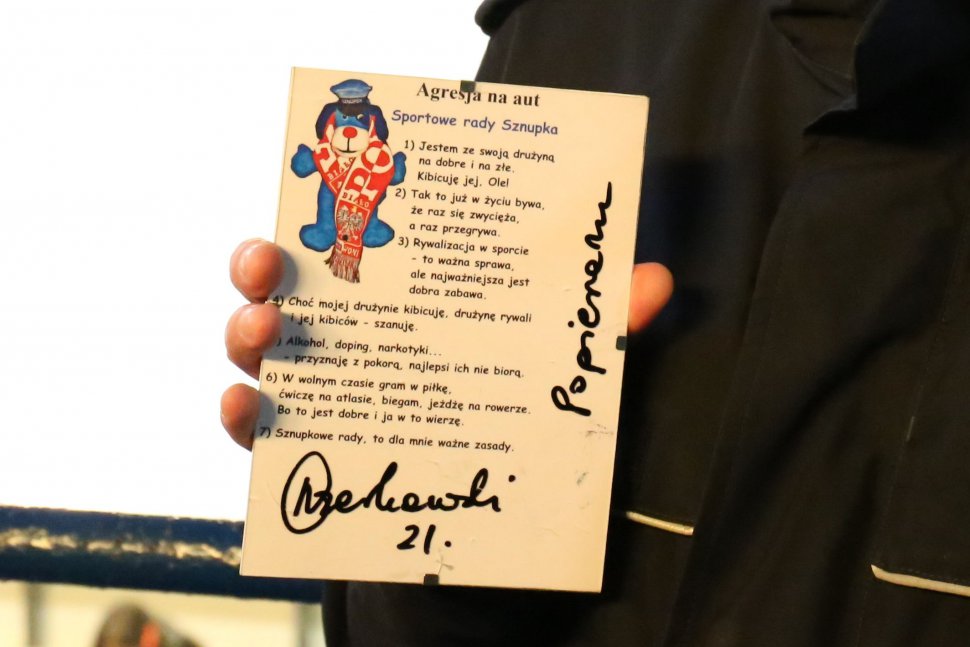 Agresja na aut
Sportowe rady Sznupka
1) Jestem ze swoją drużyną
na dobre i na złe.
Kibicuję jej, Ole!
2) Tak to już w życiu bywa,
że raz się zwycięża,
a raz przegrywa.
3) Rywalizacja w sporcie
- to ważna sprawa,
ale najważniejsza jest
dobra zabawa.
4) Choć mojej drużynie kibicuję, drużynę rywali
i jej kibiców - szanuję.
) Alkohol, doping, narkotyki...
- przyznaję z pokorą, najlepsi ich nie biorą.
6) W wolnym czasie gram w piłkę,
ćwiczę na atlasie, biegam, jeżdżę na rowerze.
Bo to jest dobre i ja w to wierzę.
7) Sznupkowe rady, to dla mnie ważne zasady.
21.
Popieram
BIAŁO
BIAŁO